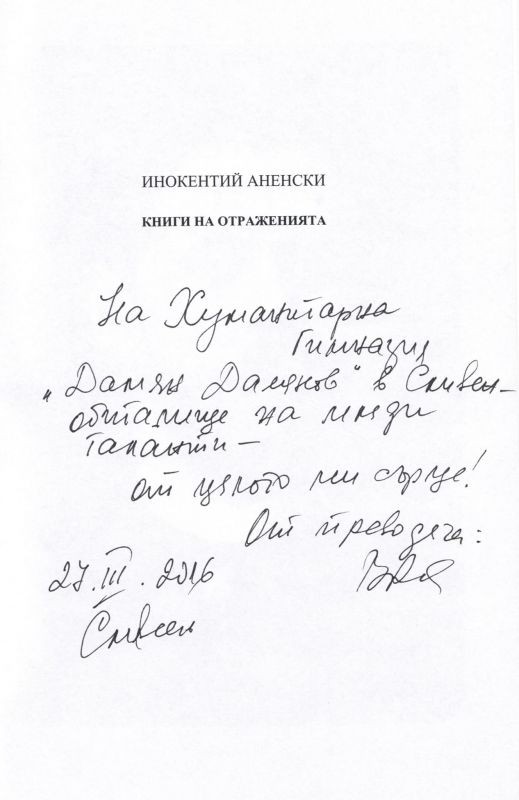 ИНОКЕНТИЙ АНЕНСКИ
КНИГИ НА ОТРАЖЕНИЯТА
На Хуманитарна
Гимназия
„Дамян Дамянов“ в Сливен –
обиталище на млади
таланти –
от цялото ми сърце!
От преводача:
27.III.2016
Сливен